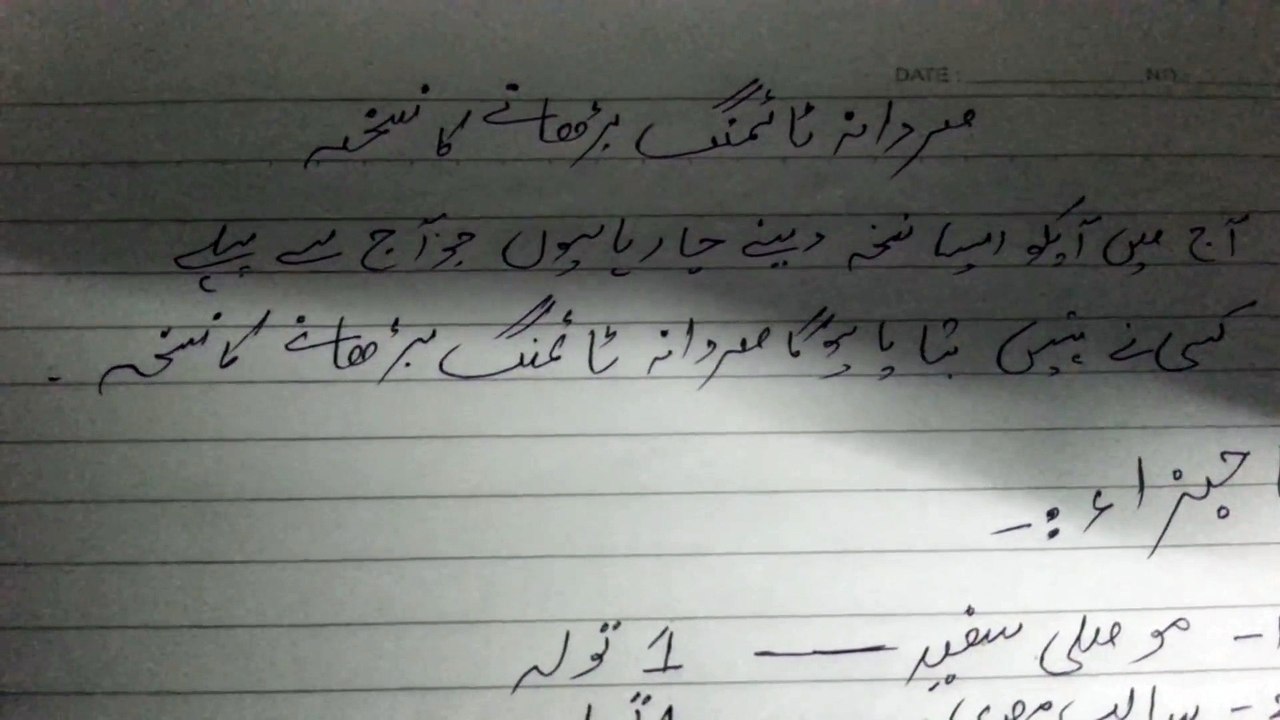 DATE: NO
مردانہ ٹائمنگ بڑھانے کا نسخہ
آج میں آپکو ایسا نسخہ دینے جا رہا ہوں جو آج سے پہلے
کسی نے نہیں بتایا ہوگا مردانہ ٹائمنگ بڑھانے کا نسخہ۔
اجزاء :-
1- موصلی سفید — 1 تولہ